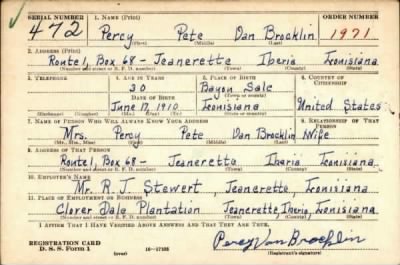 SERIAL NUMBER 1. NAME (Print) ORDER NUMBER
472 Percy Pete Van Brocklin 1971
(First) (Middle) (Last)
2. ADDRESS (Print)
Route 1, Box 68 - Jeanerette Iberia Louisiana
(Number and street or R. F. D. number) (Town) (County) (State)
3. TELEPHONE 4. AGE IN YEARS 5. PLACE OF BIRTH 6. COUNTRY OF CITIZENSHIP
30 Bayou Sale
DATE OF BIRTH (Town or county)
June 17, 1910 Louisiana United States
(Exchange) (No.) (Mo.) (Day) (Yr.) (State or country)
7. NAME OF PERSON WHO WILL ALWAYS KNOW YOUR ADDRESS 8. RELATIONSHIP OF THAT PERSON
Mrs. Percy Pete Van Brocklin Wife
(Mr., Mrs., Miss) (First) (Middle) (Last)
9. ADDRESS OF THAT PERSON
Route 1, Box 68 - Jeanerette Iberia Louisiana
(Number and street or R. F. D. number) (Town) (County) (State)
10. EMPLOYER'S NAME
Mr. R. J. Stewert, Jeanerette, Louisiana
11. PLACE OF EMPLOYMENT OR BUSINESS
Clover Dale Plantation Jeanerette, Iberia, Louisiana
(Number and street or R. F. D. number) (Town) (County) (State)
I AFFIRM THAT I HAVE VERIFIED ABOVE ANSWERS AND THAT THEY ARE TRUE.
REGISTRATION CARD
D. S. S. Form 1 (over) 16-17105 Percy Van Brocklin
(Registrant's signature)